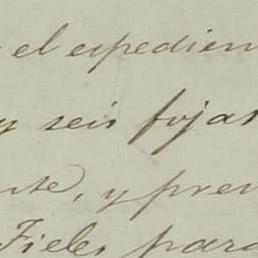 el espedien
y seis fojas
nte, y pren
Fieles para